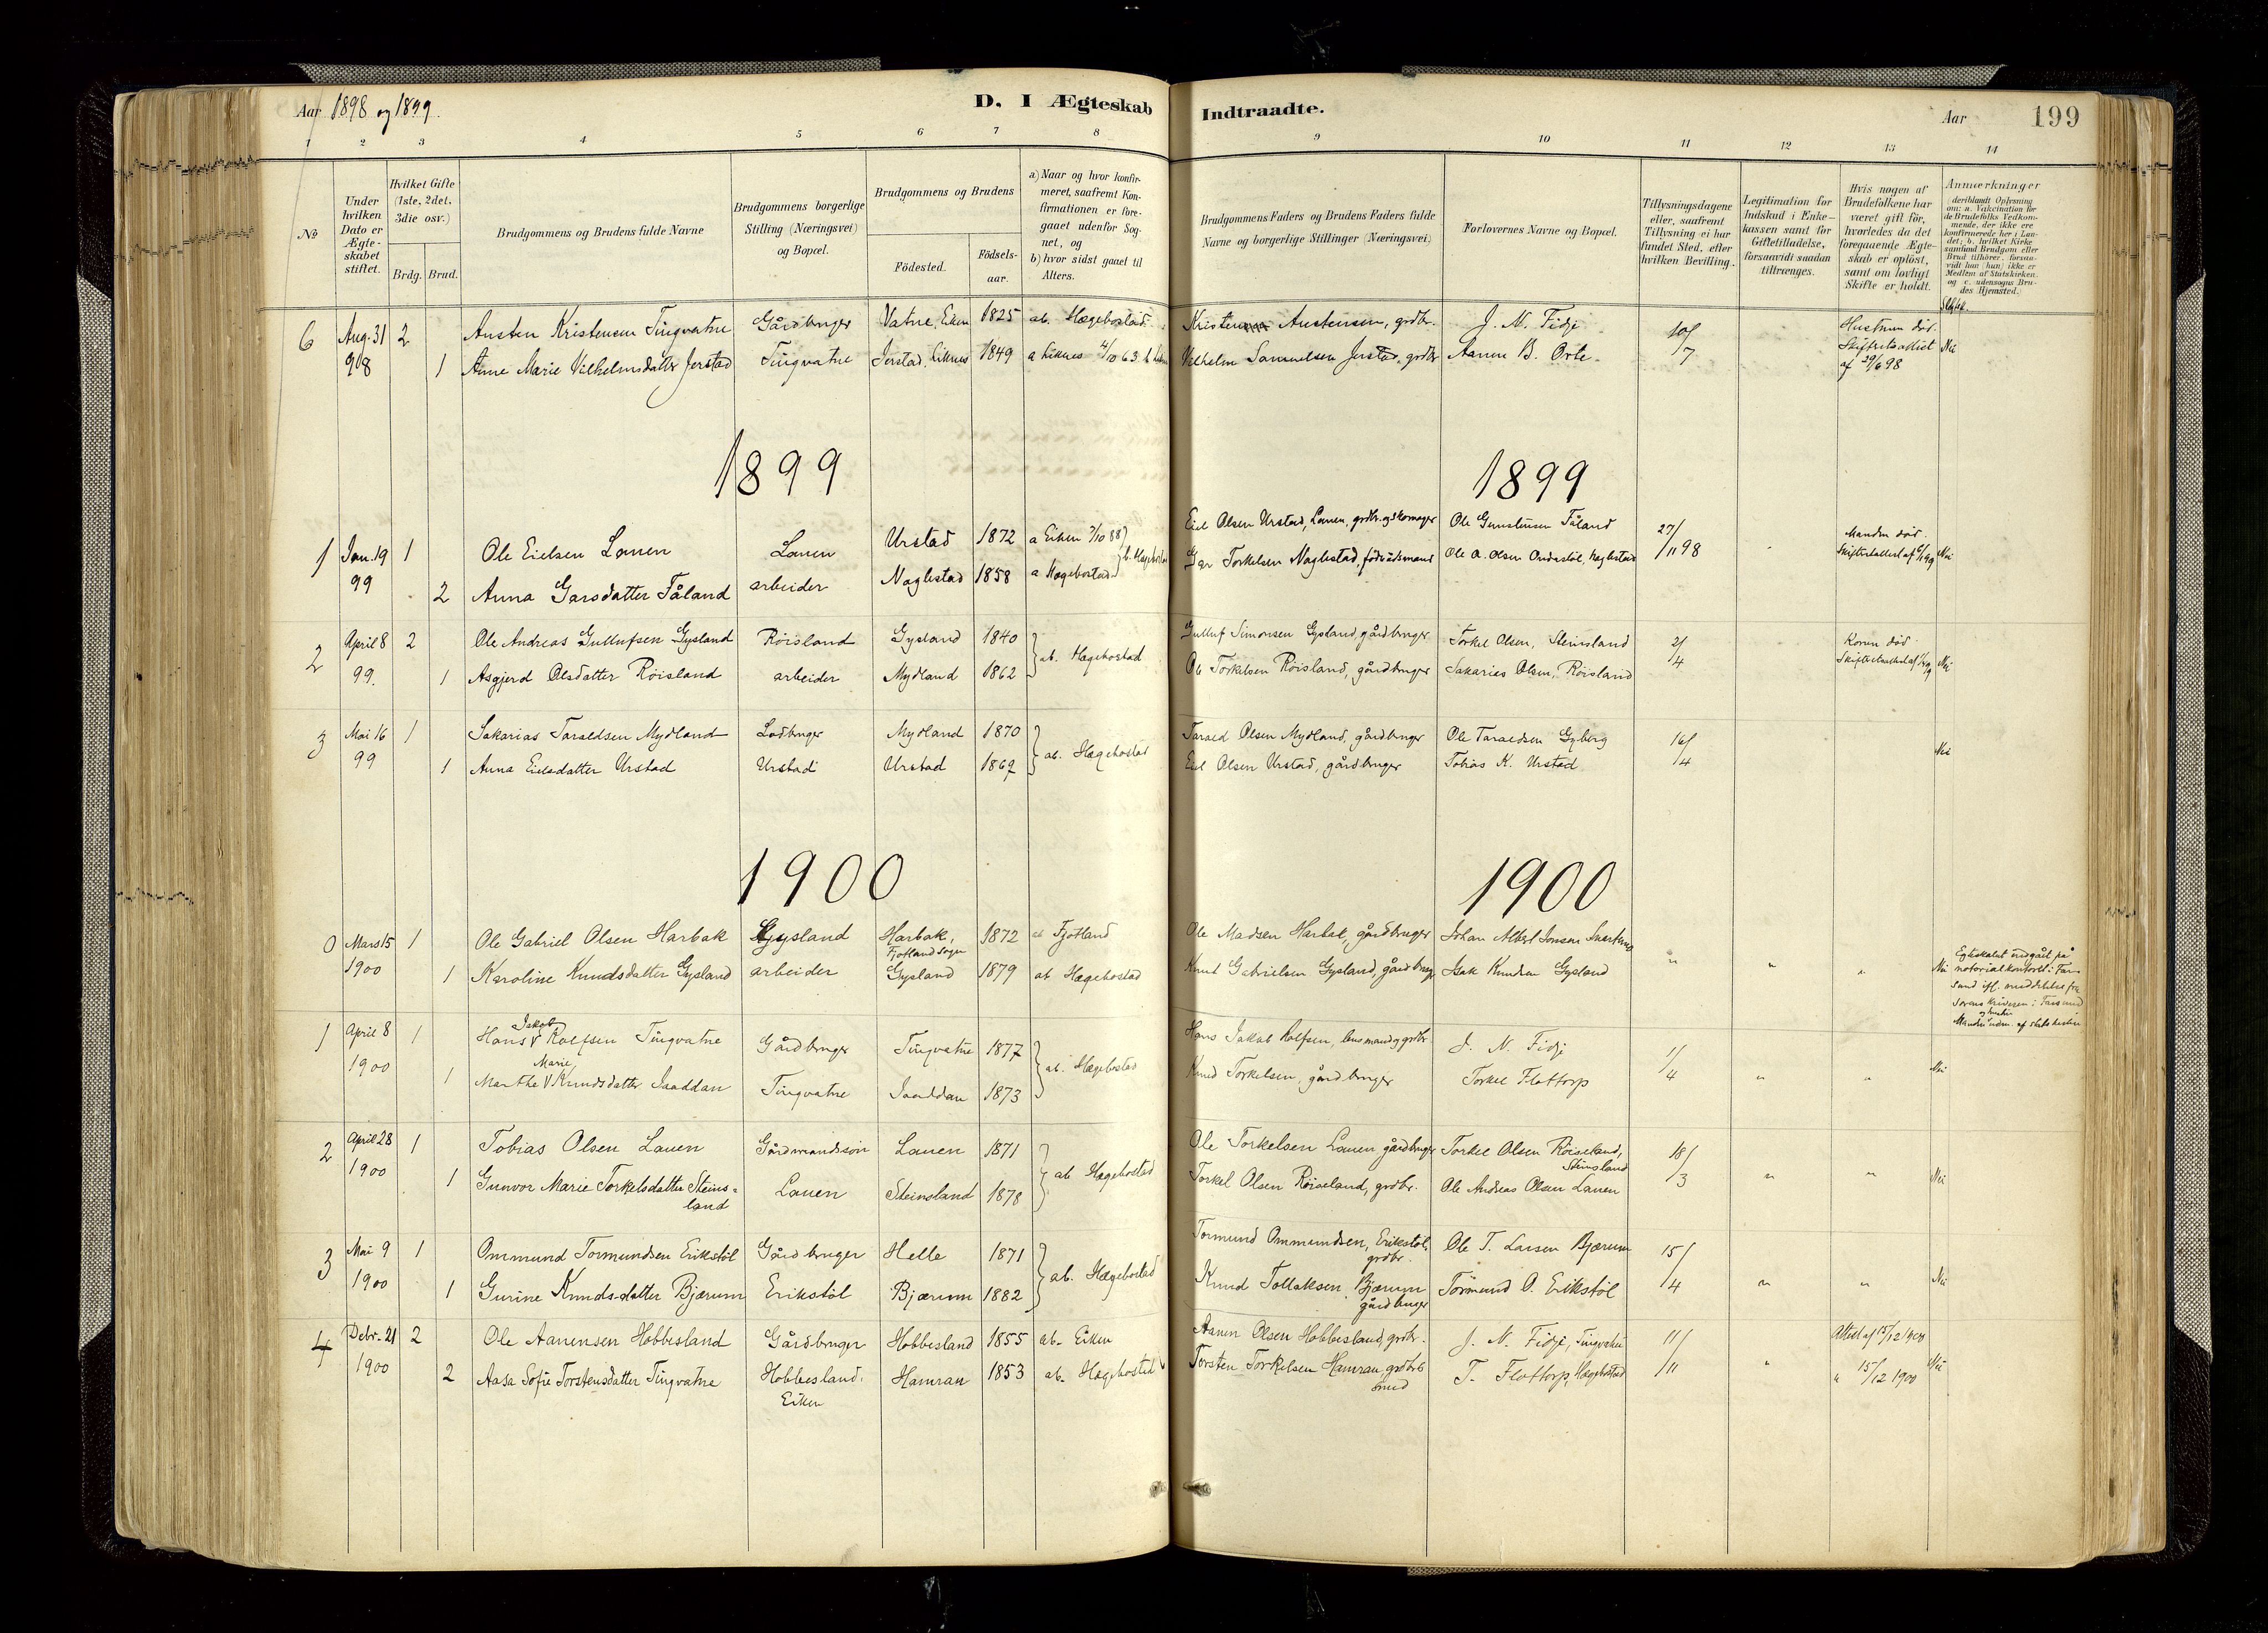 Aar 1898 og 1899.
D. I Ægteskab
Indtraadte.
Aar
199
1 2 3 4 5 6 7 8 9 10 11 12 13 14
No
Under hvilken Dato er Ægte-skabet stiftet.
Hvilket Gifte (1ste, 2det, 3die osv.)
Brdg. Brud.
Brudgommens og Brudens fulde Navne
Brudgommens borgerlige Stilling (Næringsvei) og Bopæl.
Brudgommens og Brudens
Födested.
Födsels-aar.
a) Naar og hvor konfir-meret, saafremt Kon-firmationen er fore-gaaet udenfor Sog-net, og
b) hvor sidst gaaet til Alters.
Brudgommens Faders og Brudens Faders fulde Navne og borgerlige Stillinger (Næringsvei)
Forlovernes Navne og Bopæl.
Tillysningsdagene eller, saafremt Tillysning ei har fundet Sted, efter hvilken Bevilling.
Legitimation for Indskud i Enke-kassen samt for Giftetilladelse, forsaavidt saadan tiltrænges.
Hvis nogen af Brudefolkene har været gift för, hvorledes da det foregaaende Ægte-skab er oplöst, samt om lovligt Skifte er holdt.
Anmærkninger (deriblandt Oplysning om: a. Vakcination for de Brudefolks Vedkom-mende, der ikke ere konfirmerede her i Lan-det; b. hvilket Kirke-samfund Brudgom eller Brud tilhörer, forsaa-vidt han (hun) ikke er Medlem af Statskirken, og c. udensogns Bru-des Hjemsted.)
6 Aug. 31 2 Austen Kristensen Tingvatne Gårdbruger Vatne, Eiken 1825 ab. Hægebostad. Kristen Austensen, grdbr. J. N. Fidje 10/7 Hustrun död.
98 1 Anne Marie Vilhelmsdatter Jerstad Tingvatne Jerstad, Liknes 1849 a Liknes 4/10 63 Vilhelm Samuelsen Jerstad, grdbr Aanen B. Orte. Skifteattest Nei
af 29/6 98
1899 1899
1 Jan. 19 1 Ole Eielsen Lauen Lauen Urstad 1872 a Eiken 7/10 88 Eiel Olsen Urstad, Lauen, grdbr. og skomager Ole Gunstensen Tåland 27/11 98 Manden död.
99 2 Anna Garsdatter Tåland arbeider Naglestad 1858 a Hægebostad b. Hægebostad Gar Torkelsen Naglestad, föderådsmand Ole A. Olsen Naglestad Skifteattest af Nei
2 April 8 2 Ole Andreas Gullufsen Gysland Röisland Gysland 1840 ab. Hægebostad Gulluf Simonsen Gysland, gårdbruger Torkel Olsen, Steinsland 2/4 Konen död.
99. 1 Asgjerd Olsdatter Röisland arbeider Mydland 1862 Ole Torkelsen Röisland, gårdbruger Sakarias Olsen, Röisland Skifteattest af Nei
3 Mai 16 1 Sakarias Taraldsen Mydland Lodbruger Mydland 1870 ab. Hægebostad Tarald Olsen Mydland, gårdbruger Ole Taraldsen Gyberg 16/4 Nei
99 1 Anna Eielsdatter Urstad Urstad Urstad 1867 Eiel Olsen Urstad, gårdbruger Tobias K. Urstad
1900 1900
0 Mars 15 1 Ole Gabriel Olsen Harbak Gysland Harbak, Fjotland sogn 1872 ab Fjotland Ole Madsen Harbak, gårdbruger Johan Albert Jonsen
1900 1 Karoline Knudsdatter Gysland arbeider Gysland 1879 ab. Hægebostad Knud Gabrielsen Gysland, gårdbruger Isak Knudsen Gysland " " " Nei
Egteskabet indgått på notorialkontoret i Far-sund ifl. meddelelse fra Sorenskriveren i Farsund
Manden og hustru udm. af statskirken
1 April 8 1 Hans Jakob Rolfsen Tingvatne Gårdbruger Tingvatne 1877 ab. Hægebostad Hans Jakob Rolfsen, lensmand og grdbr. J. N. Fidje 1/4 " " Nei
1900 1 Marthe Marie Knudsdatter Saaddan Tingvatne Saaddan 1873 Knud Torkelsen, gårdbruger Torkel Flottorp
2 April 28 1 Tobias Olsen Lauen Gårdmandssön Lauen 1871 ab Hægebostad Ole Torkelsen Lauen gårdbruger Torkel Olsen Röiseland, Steinsland 18/3 " " Nei
1900 1 Gunvor Marie Torkelsdatter Steins-land Lauen Steinsland 1878 Torkel Olsen Röiseland, grdbr. Ole Andreas Olsen Lauen
3 Mai 9 1 Ommund Tormundsen Erikstöl Gårdbruger Helle 1871 ab. Hægebostad Tormund Ommundsen, Erikstöl, grdbr. Ole T. Larsen Bjærum 15/4 " " Nei
1900 1 Gurine Knudsdatter Bjærum Erikstöl Bjærum 1882 Knud Tollaksen Bjærum gårdbruger Tormund O. Erikstöl
4 Debr. 21 2 Ole Aanensen Hobbesland Gårdbruger Hobbesland 1855 ab. Eiken Aanen Olsen Hobbesland, grdbr. J. N. Fidje, Tingvatne 11/11 " Attest af 15/12 1900
1900 2 Aasa Sofie Torstensdatter Tingvatne Hobbesland, Eiken Hamran 1853 ab. Hægebostad Torsten Torkelsen Hamran, grdbr & smed T. Flottorp, Hægebostad " 15/12 1900 Nei